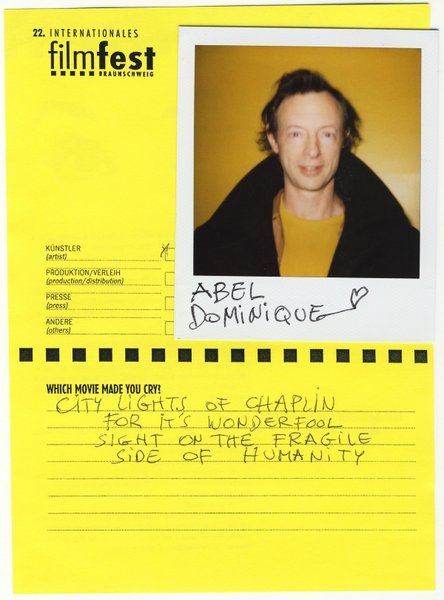 22. INTERNATIONALES
filmfest
BRAUNSCHWEIG
ABEL
DOMINIQUE
KÜNSTLER
(artist)
PRODUKTION/VERLEIH
(production/distribution)
PRESSE
(press)
ANDERE
(others)
WHICH MOVIE MADE YOU CRY?
CITY LIGHTS OF CHAPLIN
FOR IT'S WONDERFOOL
SIGHT ON THE FRAGILE
SIDE OF HUMANITY